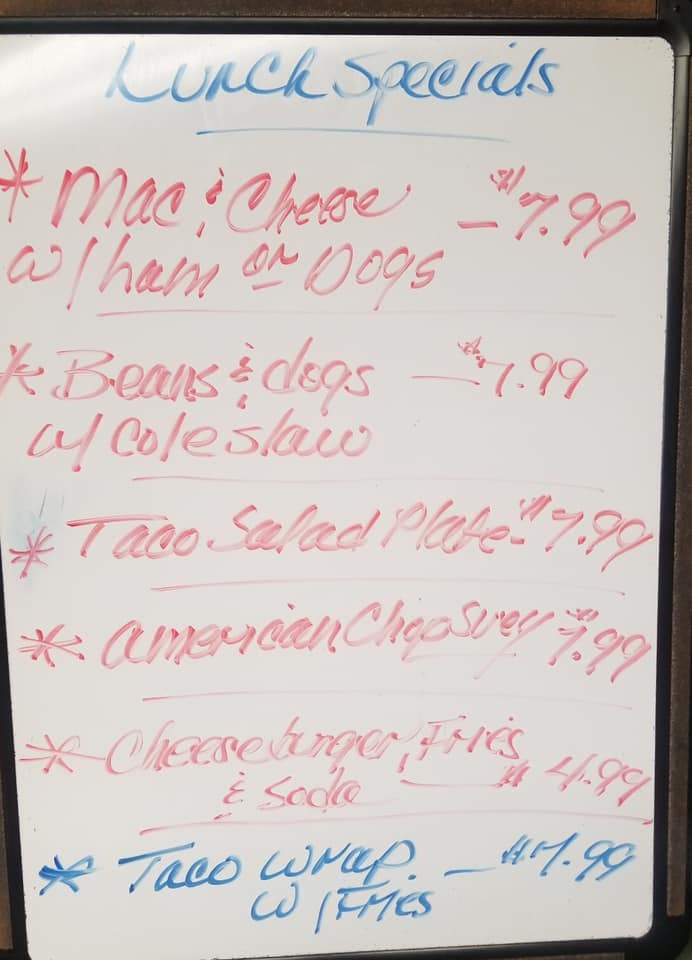 Lunch Specials
* Mac & Cheese - $7.99
w/ ham or Dogs
* Beans & dogs - $7.99
w/ Coleslaw
* Taco Salad Plate - $7.99
* American Chop Suey $7.99
* Cheeseburger, Fries
& Soda - $4.99
* Taco Wrap - $7.99
w/ Fries